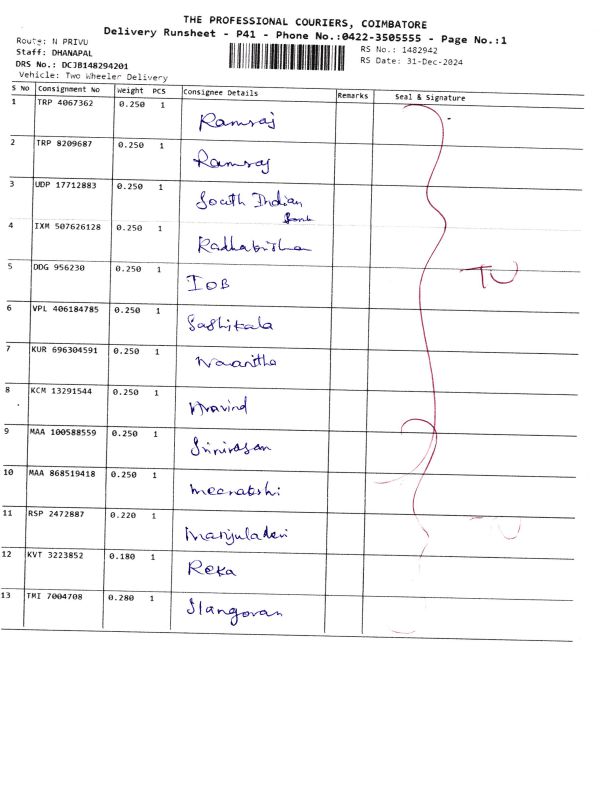 THE PROFESSIONAL COURIERS, COIMBATORE
Delivery Runsheet - P41 - Phone No.:0422-3505555 - Page No.:1
Route: N PRIVU
RS No.: 1482942
Staff: DHANAPAL
RS Date: 31-Dec-2024
DRS No.: DCJB148294201
Vehicle: Two Wheeler Delivery
S No Consignment No Weight PCS Consignee Details Remarks Seal & Signature
1 TRP 4067362 0.250 1 Ramraj
2 TRP 8209687 0.250 1 Ramraj
3 UDP 17712883 0.250 1 South Indian
Bank
4 IXM 507626128 0.250 1 Radhakrishna
5 DDG 956230 0.250 1 IOB
TU
6 VPL 406184785 0.250 1 Sashikala
7 KUR 696304591 0.250 1 Vanitha
8 KCM 13291544 0.250 1 Aravind
9 MAA 100588559 0.250 1 Srinivasan
10 MAA 868519418 0.250 1 Meenakshi
11 RSP 2472887 0.220 1 Manjuladevi
12 KVT 3223852 0.180 1 Reka
13 TMI 7004708 0.280 1 Ilangovan